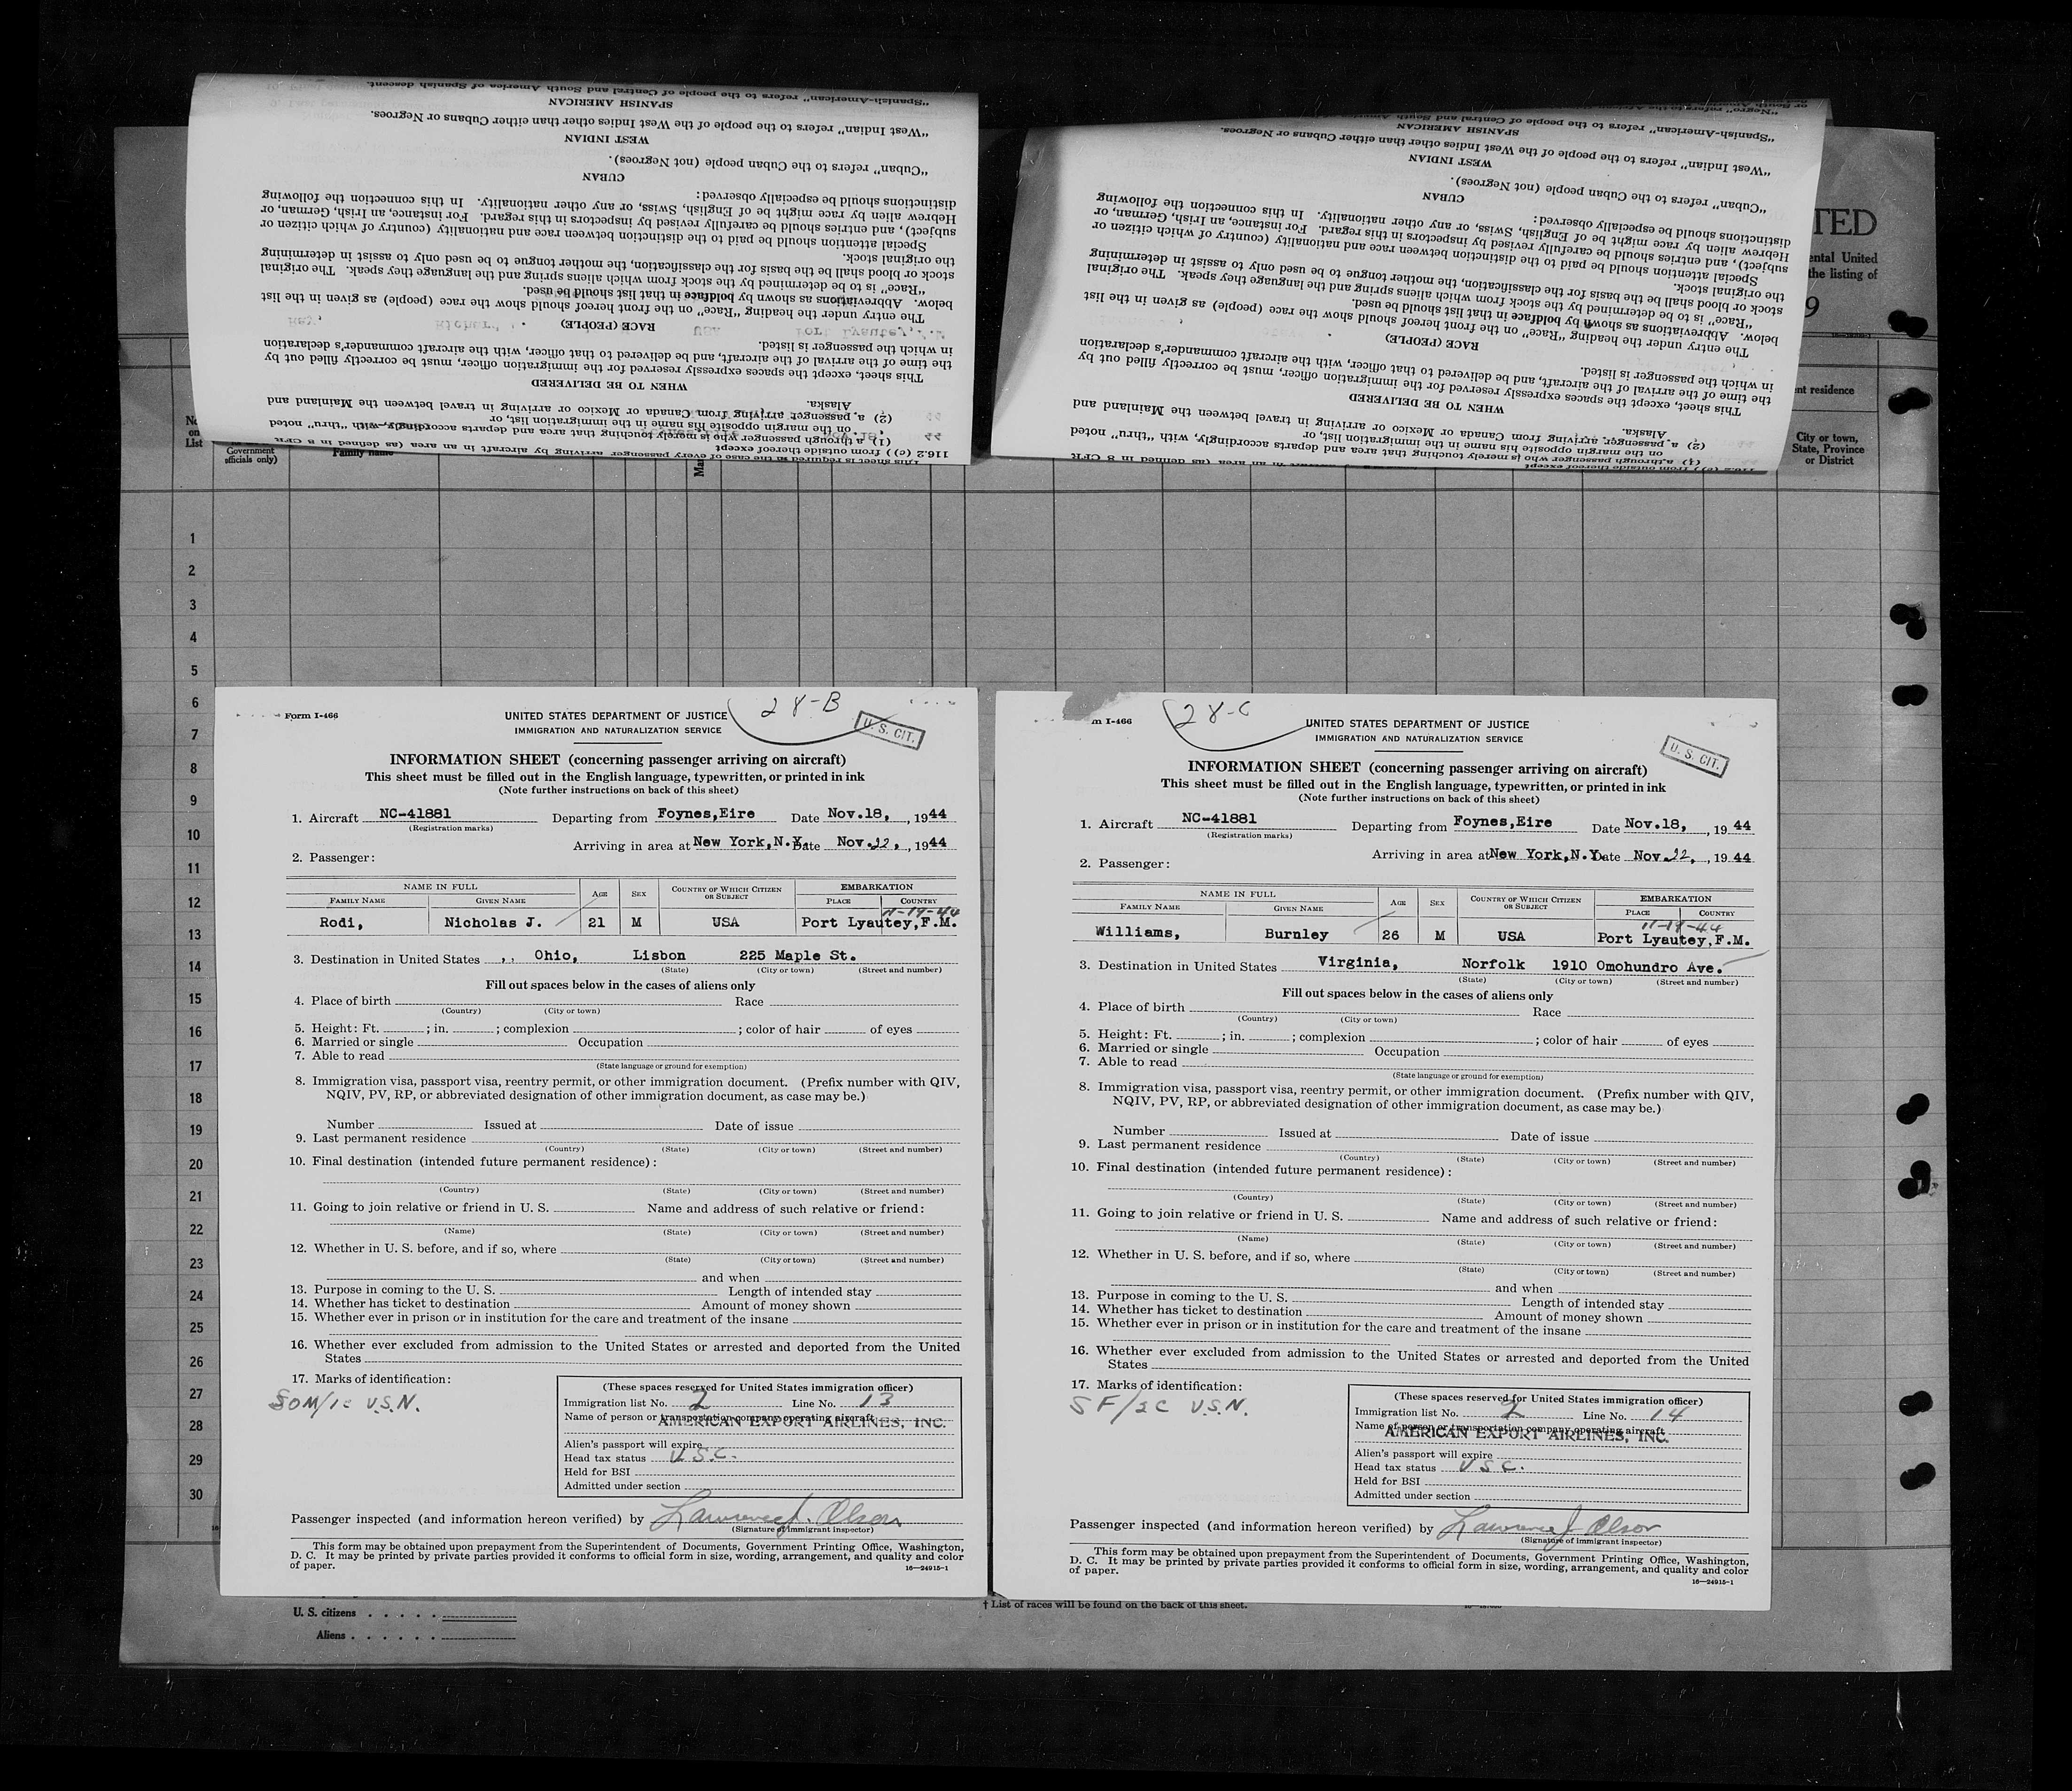 "Spanish-American" refers to the people of Central and South America of Spanish descent.
SPANISH AMERICAN
"West Indian" refers to the people of the West Indies other than either Cubans or Negroes.
WEST INDIAN
"Cuban" refers to the Cuban people (not Negroes).
CUBAN
distinctions should be especially observed:
Hebrew alien by race might be of English, Swiss, or any other nationality. In this connection the following
subject), and entries should be carefully revised by inspectors in this regard. For instance, an Irish, German, or
Special attention should be paid to the distinction between race and nationality (country of which citizen or
the original stock.
stock or blood shall be the basis for the classification, the mother tongue to be used only to assist in determining
"Race" is to be determined by the stock from which aliens spring and the language they speak. The original
below. Abbreviations as shown by boldface in that list should be used.
The entry under the heading "Race" on the front hereof should show the race (people) as given in the list
RACE (PEOPLE)
in which the passenger is listed.
the time of the arrival of the aircraft, and be delivered to that officer, with the aircraft commander's declaration
This sheet, except the spaces expressly reserved for the immigration officer, must be correctly filled out by
WHEN TO BE DELIVERED
Alaska.
(2) a passenger arriving from Canada or Mexico or arriving in travel between the Mainland and
on the margin opposite his name in the immigration list, or
(1) a through passenger who is merely touching that area and departs accordingly, with "thru" noted
116.2 (c)) from outside thereof except
This sheet is required in the case of every passenger arriving by aircraft in an area (as defined in 8 CFR
"Spanish-American" refers to the people of Central and South America
SPANISH AMERICAN
"West Indian" refers to the people of the West Indies other than either Cubans or Negroes.
WEST INDIAN
"Cuban" refers to the Cuban people (not Negroes).
CUBAN
distinctions should be especially observed:
Hebrew alien by race might be of English, Swiss, or any other nationality. In this connection the following
subject), and entries should be carefully revised by inspectors in this regard. For instance, an Irish, German, or
Special attention should be paid to the distinction between race and nationality (country of which citizen or
the original stock.
stock or blood shall be the basis for the classification, the mother tongue to be used only to assist in determining
"Race" is to be determined by the stock from which aliens spring and the language they speak. The original
below. Abbreviations as shown by boldface in that list should be used.
The entry under the heading "Race" on the front hereof should show the race (people) as given in the list
RACE (PEOPLE)
in which the passenger is listed.
the time of the arrival of the aircraft, and be delivered to that officer, with the aircraft commander's declaration
This sheet, except the spaces expressly reserved for the immigration officer, must be correctly filled out by
WHEN TO BE DELIVERED
Alaska.
(2) a passenger arriving from Canada or Mexico or arriving in travel between the Mainland and
on the margin opposite his name in the immigration list, or
(1) a through passenger who is merely touching that area and departs accordingly, with "thru" noted
TED
ental United
the listing of
9
nt residence
City or town,
State, Province
or District
No
on
List
Government
officials only)
Family name
Ma
1
2
3
4
5
6
7
8
9
10
11
12
13
14
15
16
17
18
19
20
21
22
23
24
25
26
27
28
29
30
Form I-466
28-B
U. S. CIT.
UNITED STATES DEPARTMENT OF JUSTICE
IMMIGRATION AND NATURALIZATION SERVICE
INFORMATION SHEET (concerning passenger arriving on aircraft)
This sheet must be filled out in the English language, typewritten, or printed in ink
(Note further instructions on back of this sheet)
1. Aircraft NC-41881 Departing from Foynes,Eire Date Nov.18, , 1944
(Registration marks)
Arriving in area at New York,N.Y. Date Nov.22, , 1944
2. Passenger:
NAME IN FULL AGE SEX COUNTRY OF WHICH CITIZEN OR SUBJECT EMBARKATION
FAMILY NAME GIVEN NAME PLACE COUNTRY
11-19-44
Rodi, Nicholas J. 21 M USA Port Lyautey,F.M.
3. Destination in United States Ohio, Lisbon 225 Maple St.
(State) (City or town) (Street and number)
Fill out spaces below in the cases of aliens only
4. Place of birth Race
(Country) (City or town)
5. Height: Ft. ; in. ; complexion ; color of hair of eyes
6. Married or single Occupation
7. Able to read
(State language or ground for exemption)
8. Immigration visa, passport visa, reentry permit, or other immigration document. (Prefix number with QIV,
NQIV, PV, RP, or abbreviated designation of other immigration document, as case may be.)
Number Issued at Date of issue
9. Last permanent residence
(Country) (State) (City or town) (Street and number)
10. Final destination (intended future permanent residence):
(Country) (State) (City or town) (Street and number)
11. Going to join relative or friend in U. S. Name and address of such relative or friend:
(Name) (State) (City or town) (Street and number)
12. Whether in U. S. before, and if so, where
(State) (City or town) (Street and number)
and when
13. Purpose in coming to the U. S. Length of intended stay
14. Whether has ticket to destination Amount of money shown
15. Whether ever in prison or in institution for the care and treatment of the insane
16. Whether ever excluded from admission to the United States or arrested and deported from the United
States
17. Marks of identification:
SOM/1c U.S.N.
(These spaces reserved for United States immigration officer)
Immigration list No. 2 Line No. 13
Name of person or transportation company operating aircraft
AMERICAN EXPORT AIRLINES, INC.
Alien's passport will expire
Head tax status U.S.C.
Held for BSI
Admitted under section
Passenger inspected (and information hereon verified) by Lawrence J. Olson
(Signature of immigrant inspector)
This form may be obtained upon prepayment from the Superintendent of Documents, Government Printing Office, Washington,
D. C. It may be printed by private parties provided it conforms to official form in size, wording, arrangement, and quality and color
of paper.
16—24915-1
m I-466
28-C
U. S. CIT.
UNITED STATES DEPARTMENT OF JUSTICE
IMMIGRATION AND NATURALIZATION SERVICE
INFORMATION SHEET (concerning passenger arriving on aircraft)
This sheet must be filled out in the English language, typewritten, or printed in ink
(Note further instructions on back of this sheet)
1. Aircraft NC-41881 Departing from Foynes,Eire Date Nov.18, , 1944
(Registration marks)
Arriving in area at New York,N.Y. Date Nov.22, , 1944
2. Passenger:
NAME IN FULL AGE SEX COUNTRY OF WHICH CITIZEN OR SUBJECT EMBARKATION
FAMILY NAME GIVEN NAME PLACE COUNTRY
11-19-44
Williams, Burnley 26 M USA Port Lyautey,F.M.
3. Destination in United States Virginia, Norfolk 1910 Omohundro Ave.
(State) (City or town) (Street and number)
Fill out spaces below in the cases of aliens only
4. Place of birth Race
(Country) (City or town)
5. Height: Ft. ; in. ; complexion ; color of hair of eyes
6. Married or single Occupation
7. Able to read
(State language or ground for exemption)
8. Immigration visa, passport visa, reentry permit, or other immigration document. (Prefix number with QIV,
NQIV, PV, RP, or abbreviated designation of other immigration document, as case may be.)
Number Issued at Date of issue
9. Last permanent residence
(Country) (State) (City or town) (Street and number)
10. Final destination (intended future permanent residence):
(Country) (State) (City or town) (Street and number)
11. Going to join relative or friend in U. S. Name and address of such relative or friend:
(Name) (State) (City or town) (Street and number)
12. Whether in U. S. before, and if so, where
(State) (City or town) (Street and number)
and when
13. Purpose in coming to the U. S. Length of intended stay
14. Whether has ticket to destination Amount of money shown
15. Whether ever in prison or in institution for the care and treatment of the insane
16. Whether ever excluded from admission to the United States or arrested and deported from the United
States
17. Marks of identification:
SF/2c U.S.N.
(These spaces reserved for United States immigration officer)
Immigration list No. 2 Line No. 14
Name of person or transportation company operating aircraft
AMERICAN EXPORT AIRLINES, INC.
Alien's passport will expire
Head tax status U S C.
Held for BSI
Admitted under section
Passenger inspected (and information hereon verified) by Lawrence J Olson
(Signature of immigrant inspector)
This form may be obtained upon prepayment from the Superintendent of Documents, Government Printing Office, Washington,
D. C. It may be printed by private parties provided it conforms to official form in size, wording, arrangement, and quality and color
of paper.
16—24915-1
U. S. citizens
Aliens
† List of races will be found on the back of this sheet.